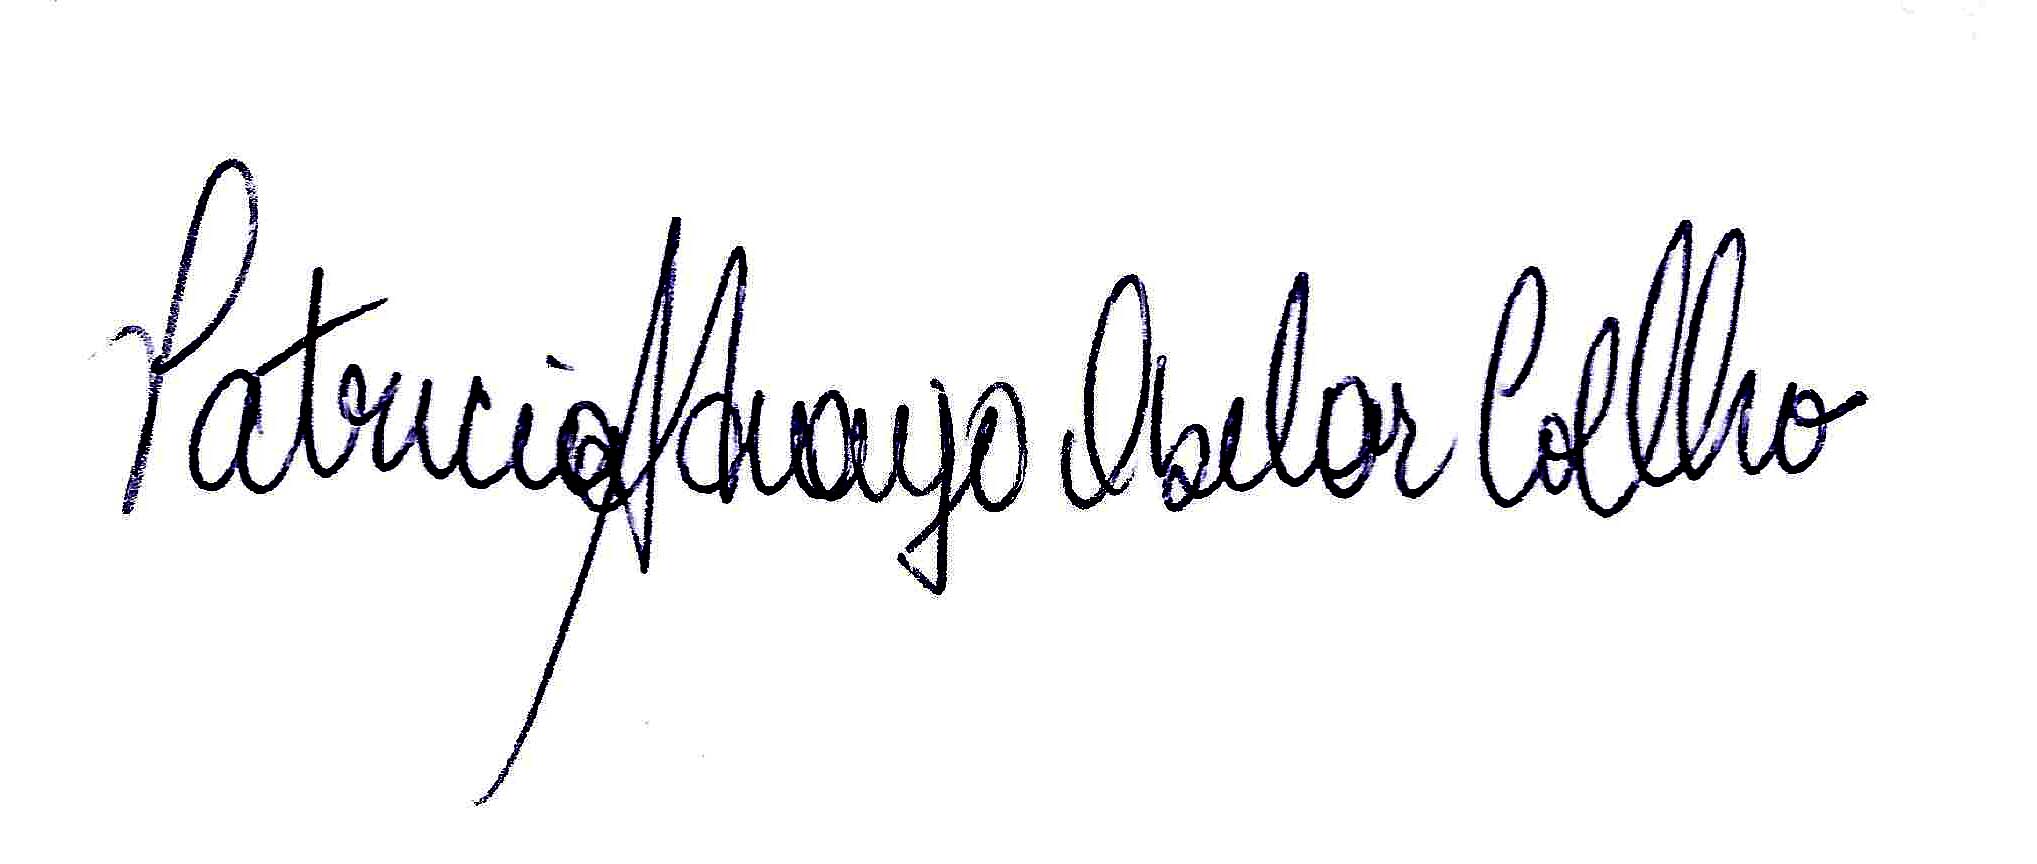 Patricia Araujo Abelar Coelho